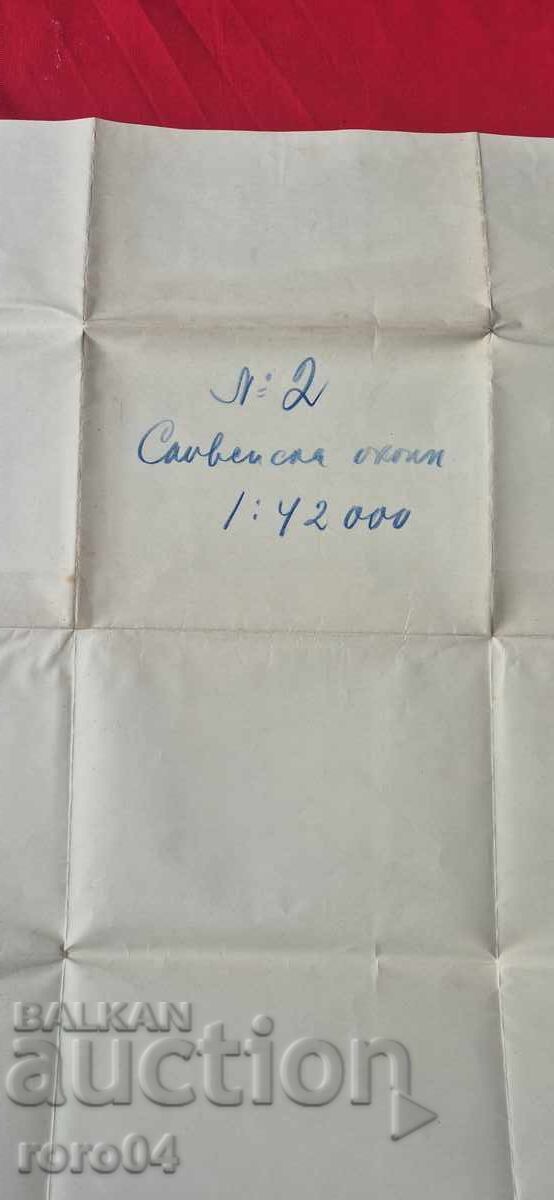 № 2
Сливенска окол.
1:42000
BALKAN
auction
roro04